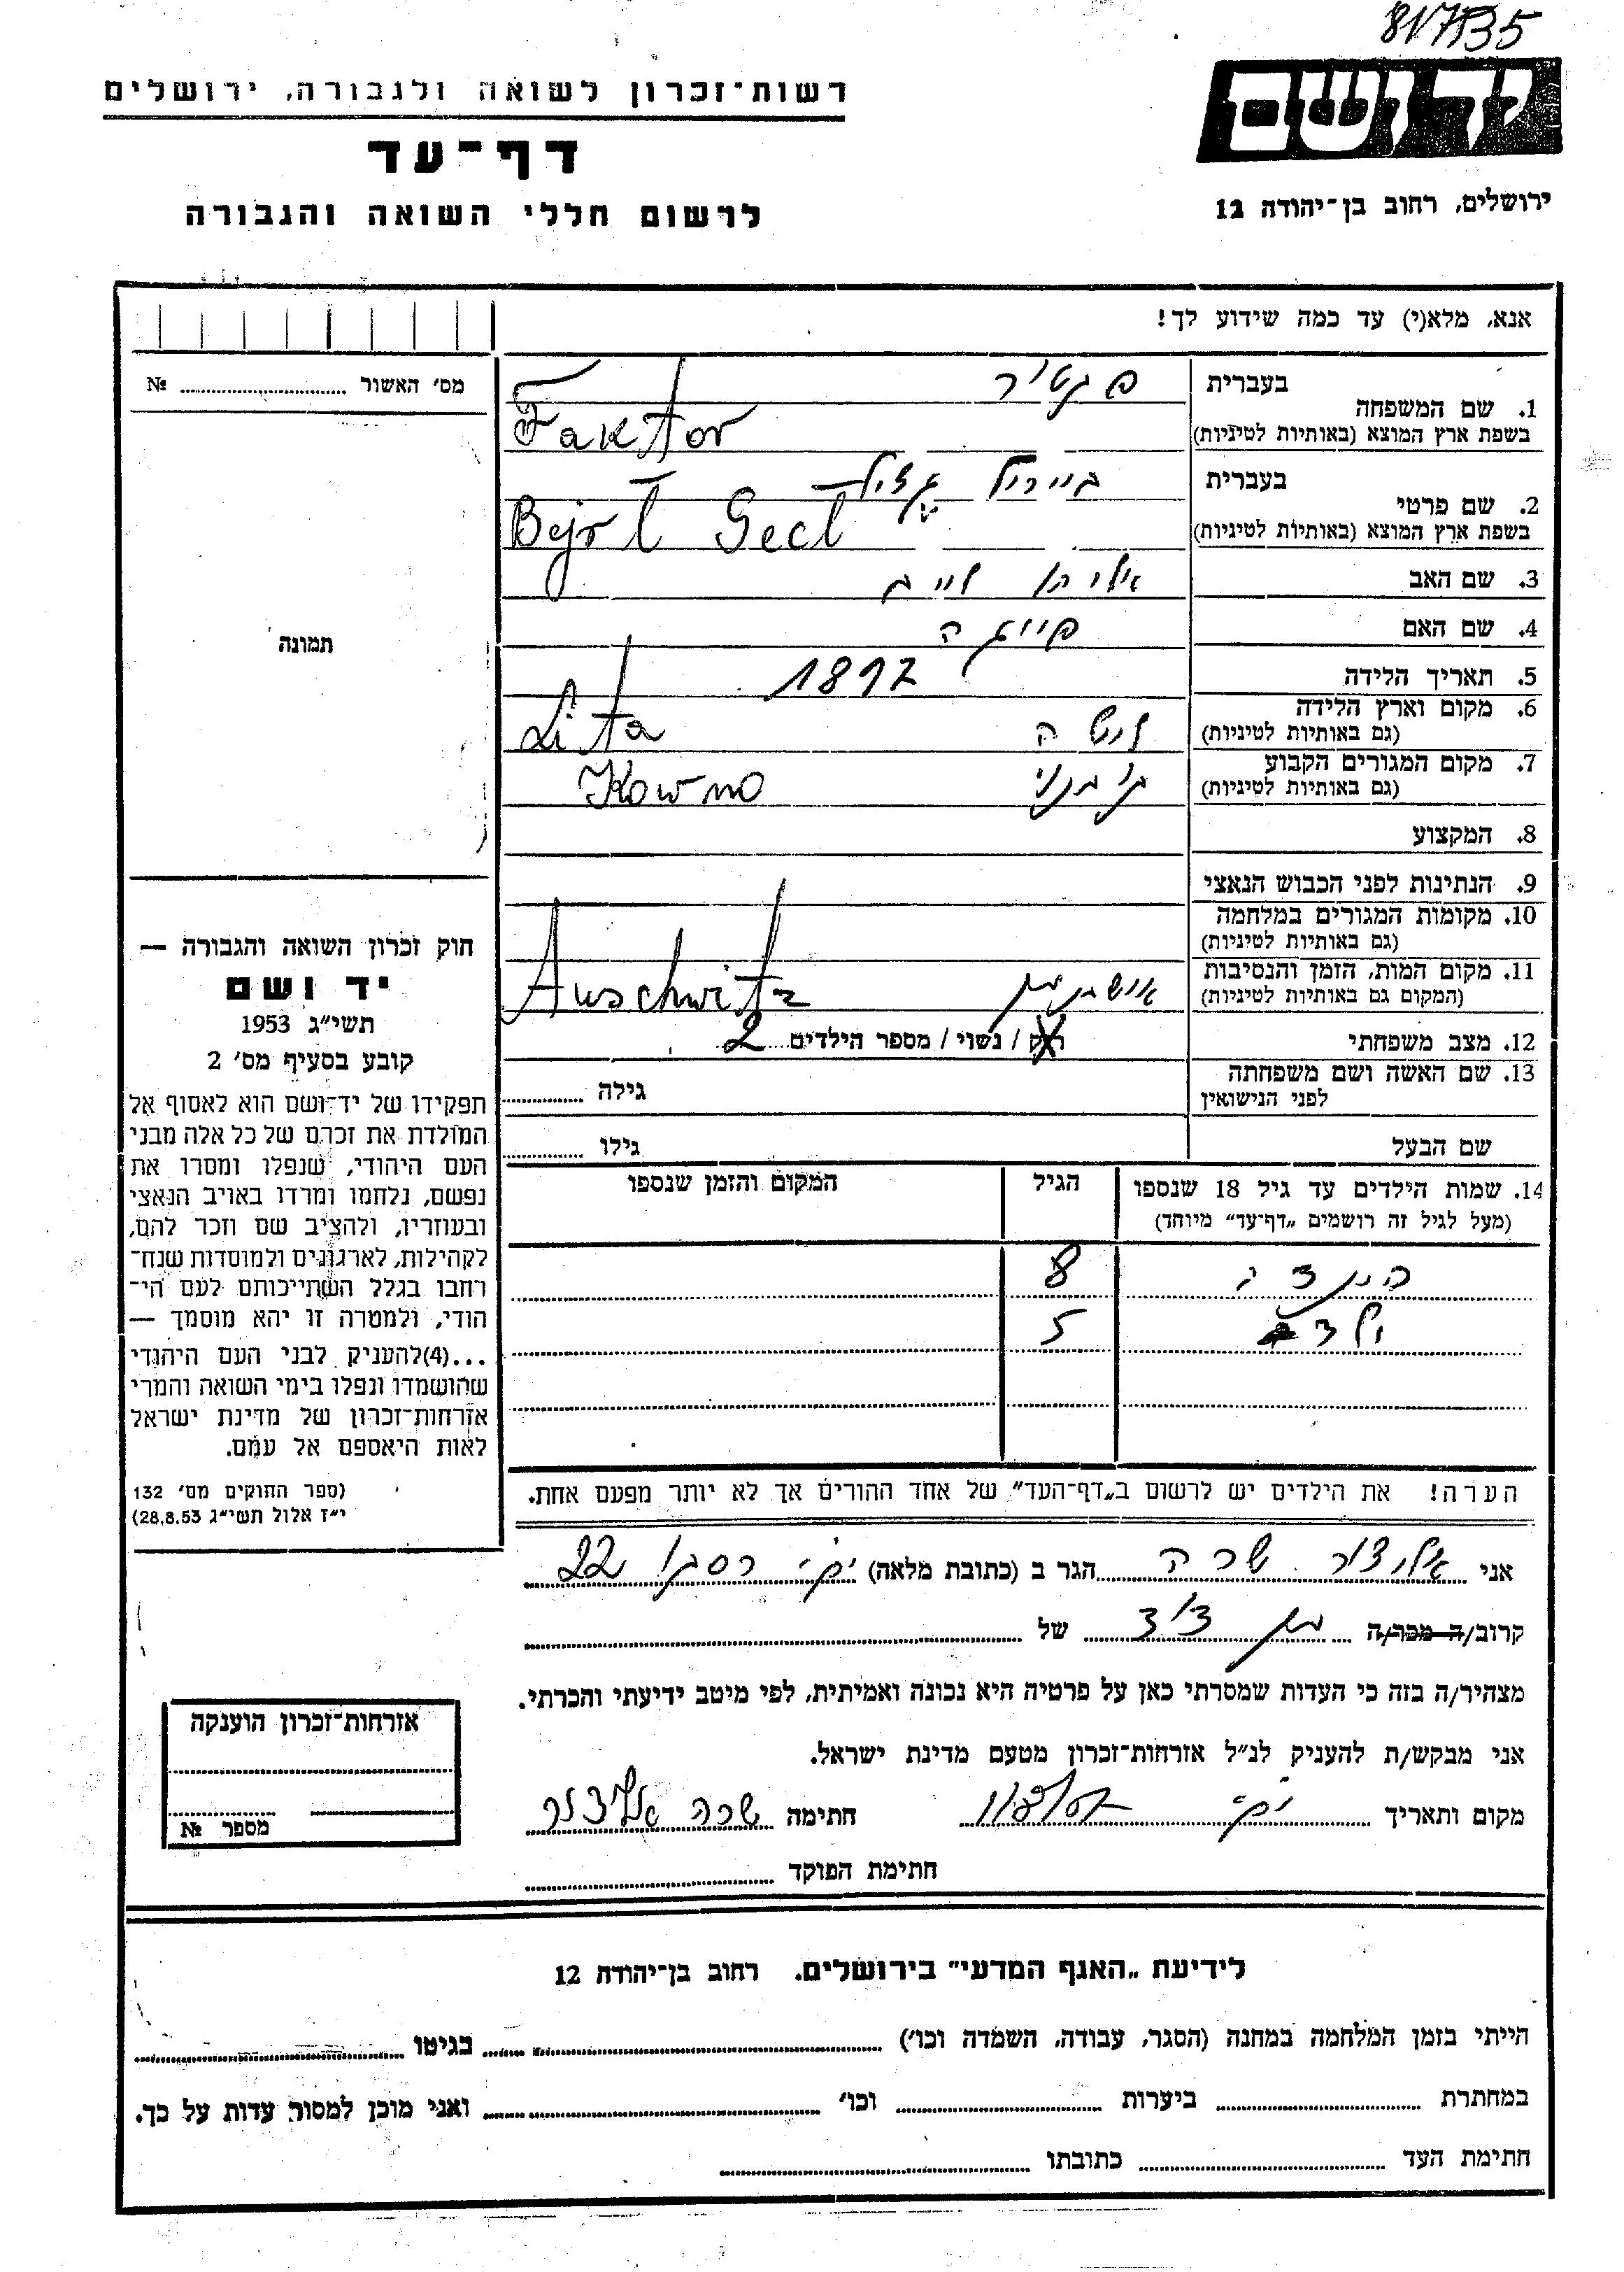 81735
ידושם
רשות־זכרון לשואה ולגבורה, ירושלים
דף־עד
לרשום חללי השואה והגבורה
ירושלים, רחוב בן־יהודה 12
אנא, מלא(י) עד כמה שידוע לך!
מס׳ האשור № 
1. שם המשפחה
בעברית פקטור
בשפת ארץ המוצא (באותיות לטיניות) Faktor
2. שם פרטי
בעברית ביירל געצל
בשפת ארץ המוצא (באותיות לטיניות) Bejrl Gecl
3. שם האב אליהו חיים
4. שם האם פייגה
5. תאריך הלידה 1897
6. מקום וארץ הלידה
(גם באותיות לטיניות) ליטה Lita
7. מקום המגורים הקבוע
(גם באותיות לטיניות) Kowno
8. המקצוע
9. הנתינות לפני הכבוש הנאצי
10. מקומות המגורים במלחמה
(גם באותיות לטיניות)
11. מקום המות, הזמן והנסיבות
(המקום גם באותיות לטיניות) Auschwitz
12. מצב משפחתי רוק / נשוי / מספר הילדים 2
13. שם האשה ושם משפחתה
לפני הנישואין גילה
שם הבעל גילו
14. שמות הילדים עד גיל 18 שנספו הגיל המקום והזמן שנספו
(מעל לגיל זה רושמים „דף־עד״ מיוחד)
8
5
הערה! את הילדים יש לרשום ב„דף־העד״ של אחד ההורים אך לא יותר מפעם אחת.
תמונה
חוק זכרון השואה והגבורה —
יד ושם
תשי״ג 1953
קובע בסעיף מס׳ 2
תפקידו של יד־ושם הוא לאסוף אל
המולדת את זכרם של כל אלה מבני
העם היהודי, שנפלו ומסרו את
נפשם, נלחמו ומרדו באויב הנאצי
ובעוזריו, ולהציב שם וזכר להם,
לקהילות, לארגונים ולמוסדות שנח־
רחבו בגלל השתייכותם לעם הי־
הודי, ולמטרה זו יהא מוסמך —
...(4)להעניק לבני העם היהודי
שהושמדו ונפלו בימי השואה והמרי
אזרחות־זכרון של מדינת ישראל
לאות היאספם אל עמם.
(ספר החוקים מס׳ 132
י״ז אלול תשי״ג 28.8.53)
אני שרה הגר ב (כתובת מלאה) 22
קרוב/ה מכר/ה של
מצהיר/ה בזה כי העדות שמסרתי כאן על פרטיה היא נכונה ואמיתית, לפי מיטב ידיעתי והכרתי.
אני מבקש/ת להעניק לנ״ל אזרחות־זכרון מטעם מדינת ישראל.
מקום ותאריך חתימה שרה
חתימת הפוקד
אזרחות־זכרון הוענקה
מספר №
לידיעת „האגף המדעי״ בירושלים. רחוב בן־יהודה 12
הייתי בזמן המלחמה במחנה (הסגר, עבודה, השמדה וכו׳) בגיטו
במחתרת ביערות וכו׳ ואני מוכן למסור עדות על כך.
חתימת העד כתובתו